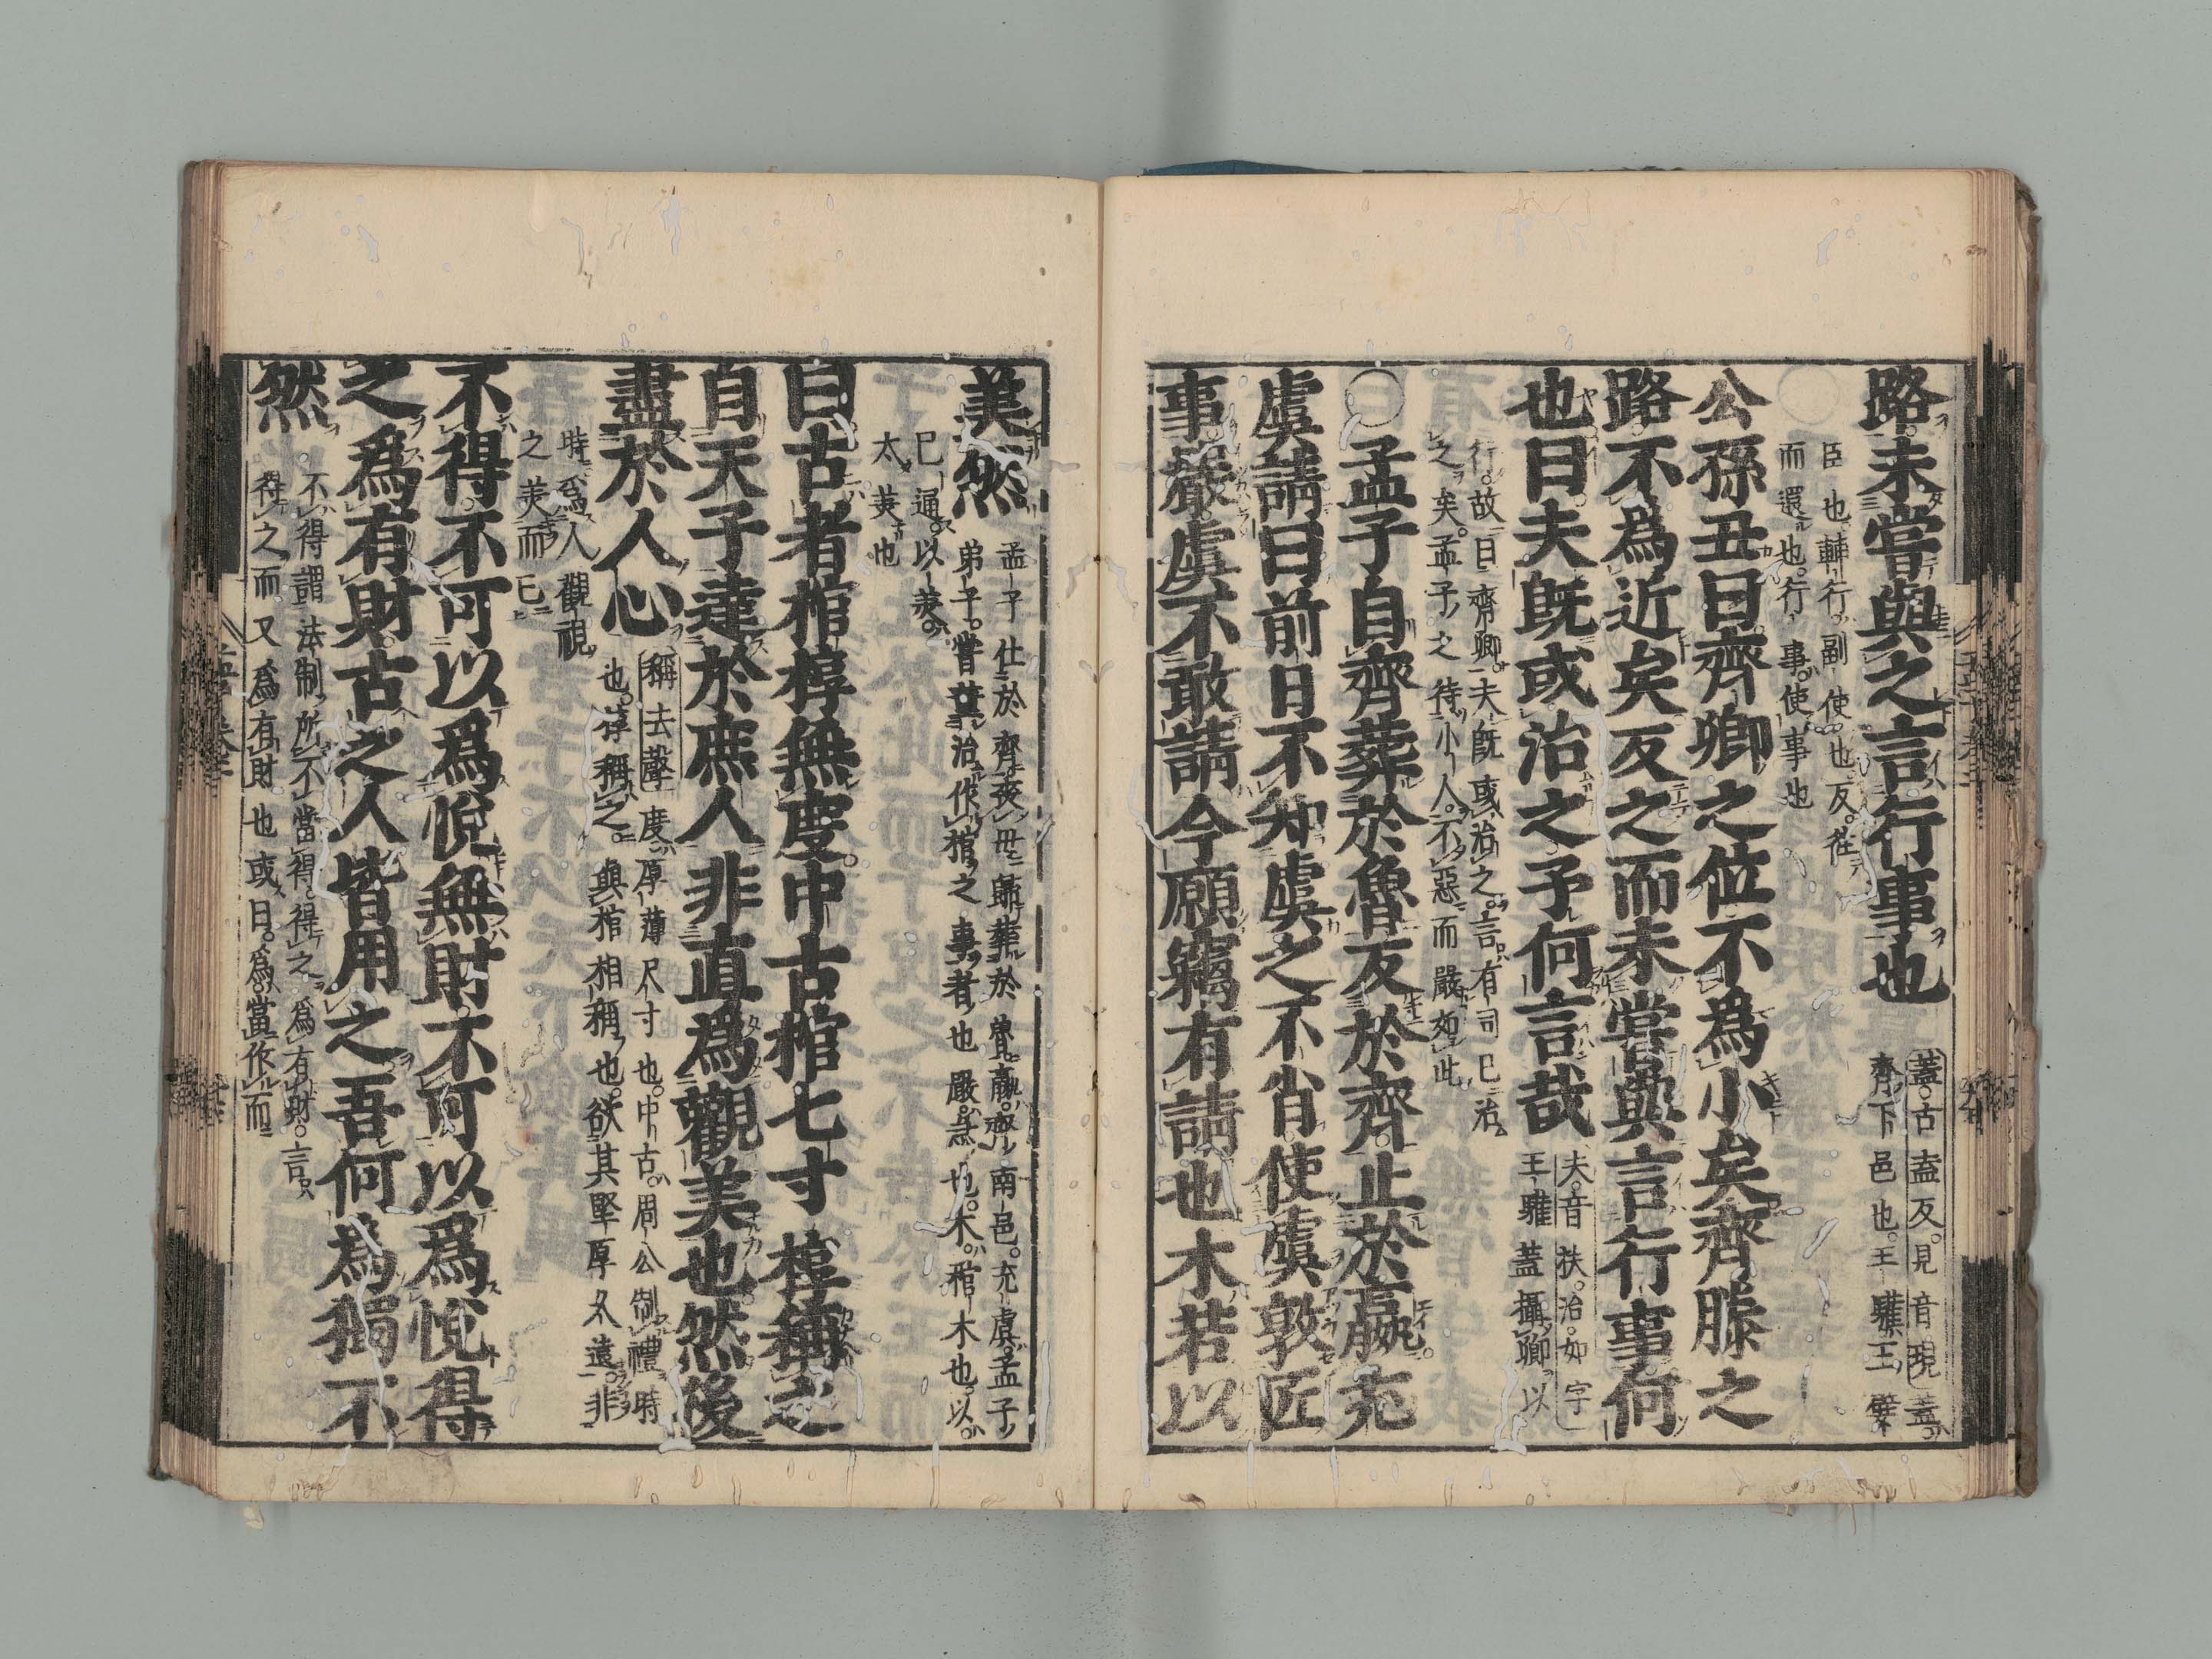 路未嘗與之言行事也
蓋古盍反見音現蓋
齊下邑也王驩王嬖
臣也輔行副使也反往
而還也行事使事也
公孫丑曰齊卿之位不爲小矣齊滕之
路不爲近矣反之而未嘗與言行事何
也曰夫既或治之予何言哉
夫音扶治如字
王驩蓋攝卿以
行故曰齊卿夫既或治之言有司已治
之矣孟子之待小人不惡而嚴如此
○孟子自齊葬於魯反於齊止於嬴充
虞請曰前日不知虞之不肖使虞敦匠
事嚴虞不敢請今願竊有請也木若以
美然
孟子仕於齊喪母歸葬於魯嬴齊南邑充虞孟子
弟子嘗董治作棺之事者也嚴急也木棺木也以
已通以美
太美也
曰古者棺椁無度中古棺七寸椁稱之
自天子達於庶人非直爲觀美也然後
盡於人心
稱去聲度厚薄尺寸也中古周公制禮時
也椁稱之與棺相稱也欲其堅厚久遠非
時爲人觀視
之美而已
不得不可以爲悅無財不可以爲悅得
之爲有財古之人皆用之吾何爲獨不
然
不得謂法制所不當得得之爲有財言
得之而又爲有財也或曰爲當作而